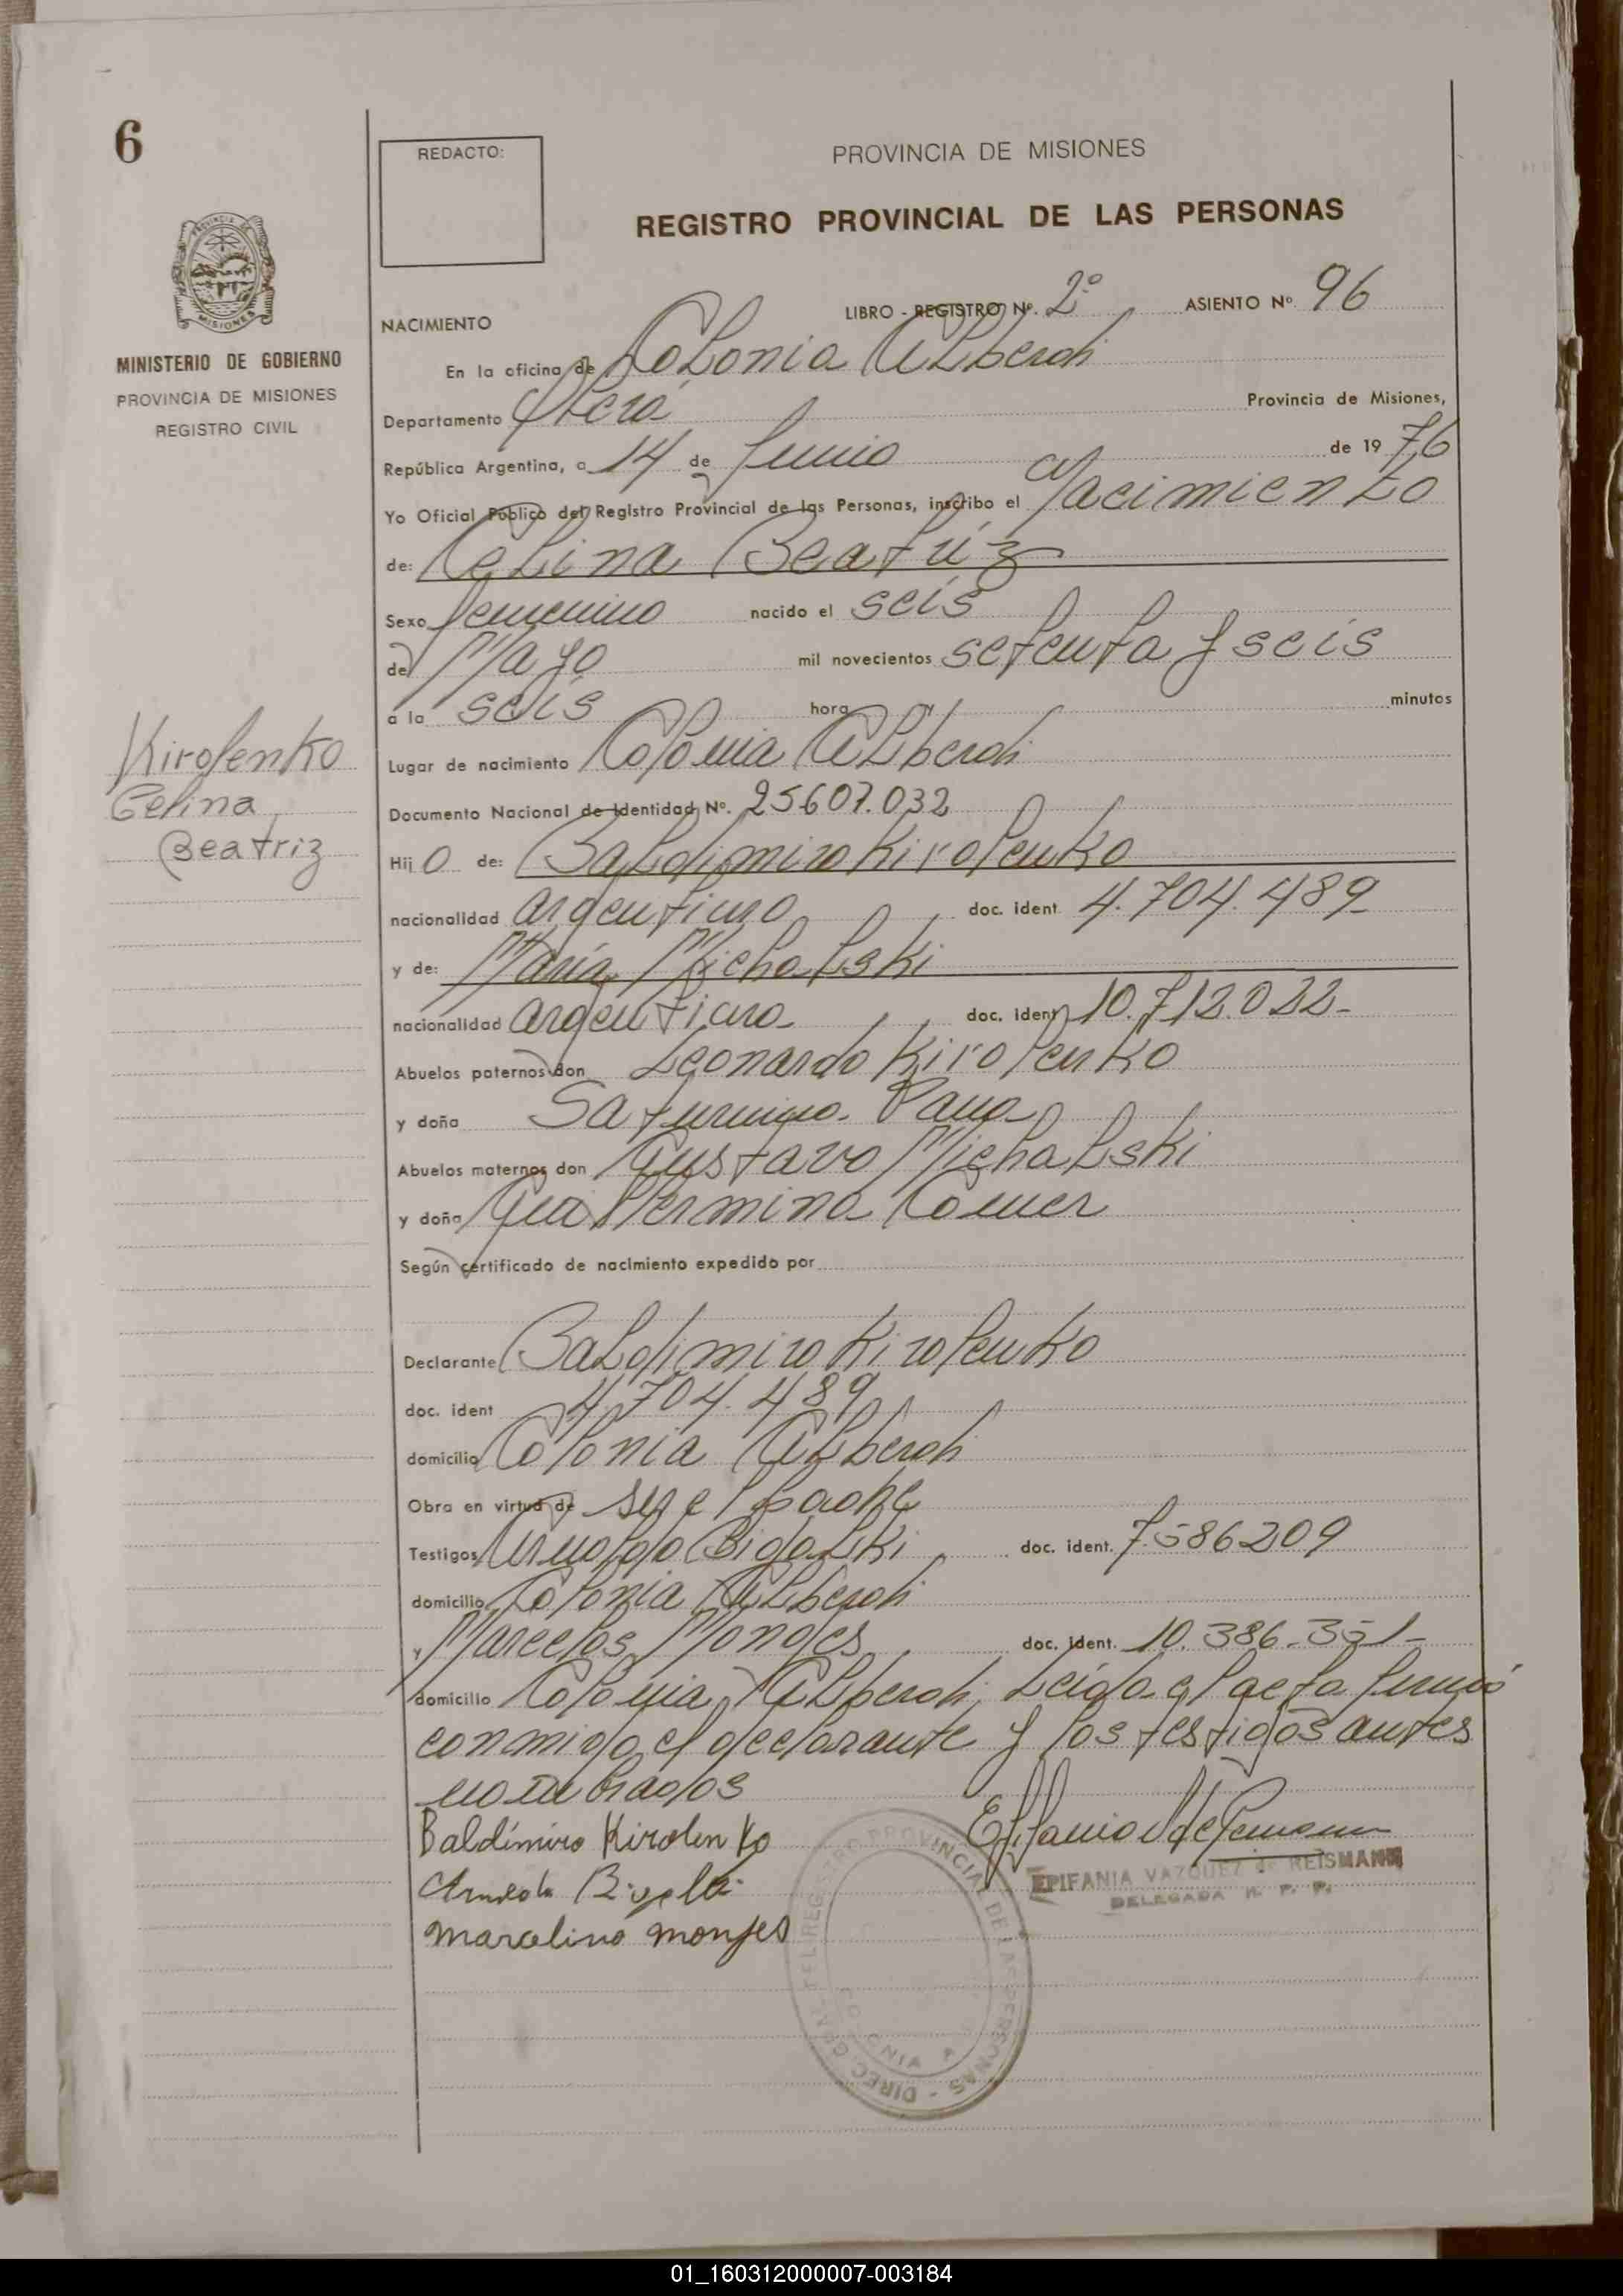 6
REDACTO:
PROVINCIA DE MISIONES
REGISTRO PROVINCIAL DE LAS PERSONAS
MINISTERIO DE GOBIERNO
PROVINCIA DE MISIONES
REGISTRO CIVIL
NACIMIENTO
LIBRO - REGISTRO Nº. 2º ASIENTO Nº. 96
En la oficina de Colonia Alberdi
Departamento Oberá Provincia de Misiones,
República Argentina, a 14 de Junio de 1976
Yo Oficial Público del Registro Provincial de las Personas, inscribo el Nacimiento
de: Celina Beatriz
Sexo femenino nacido el seis
de Mayo mil novecientos setenta y seis
a la seis hora minutos
Kirolenko
Celina
Beatriz
Lugar de nacimiento Colonia Alberdi
Documento Nacional de Identidad Nº. 25607.032
Hij o de: Baldimiro Kirolenko
nacionalidad argentino doc. ident 4.704.489-
y de: María Michalski
nacionalidad argentino doc. ident 10.712.022-
Abuelos paternos don Leonardo Kirolenko
y doña
Abuelos maternos don Gustavo Michalski
y doña Guillermina
Según certificado de nacimiento expedido por
Declarante Baldimiro Kirolenko
doc. ident 4.704.489
domicilio Colonia Alberdi
Obra en virtud de ser el padre
Testigos Arnoldo doc. ident. 7.586209
domicilio Colonia Alberdi
y Marcelos Monges doc. ident. 10.386.351-
domicilio Colonia Alberdi, Leída el acta firmó
conmigo el declarante y los testigos antes
nombrados
Baldimiro Kirolenko
marcelino monjes
EPIFANIA VAZQUEZ de REISMANN
DELEGADA R. P. P.
DIREC. GRAL. DEL REGISTRO PROVINCIAL DE LAS PERSONAS
01_160312000007-003184